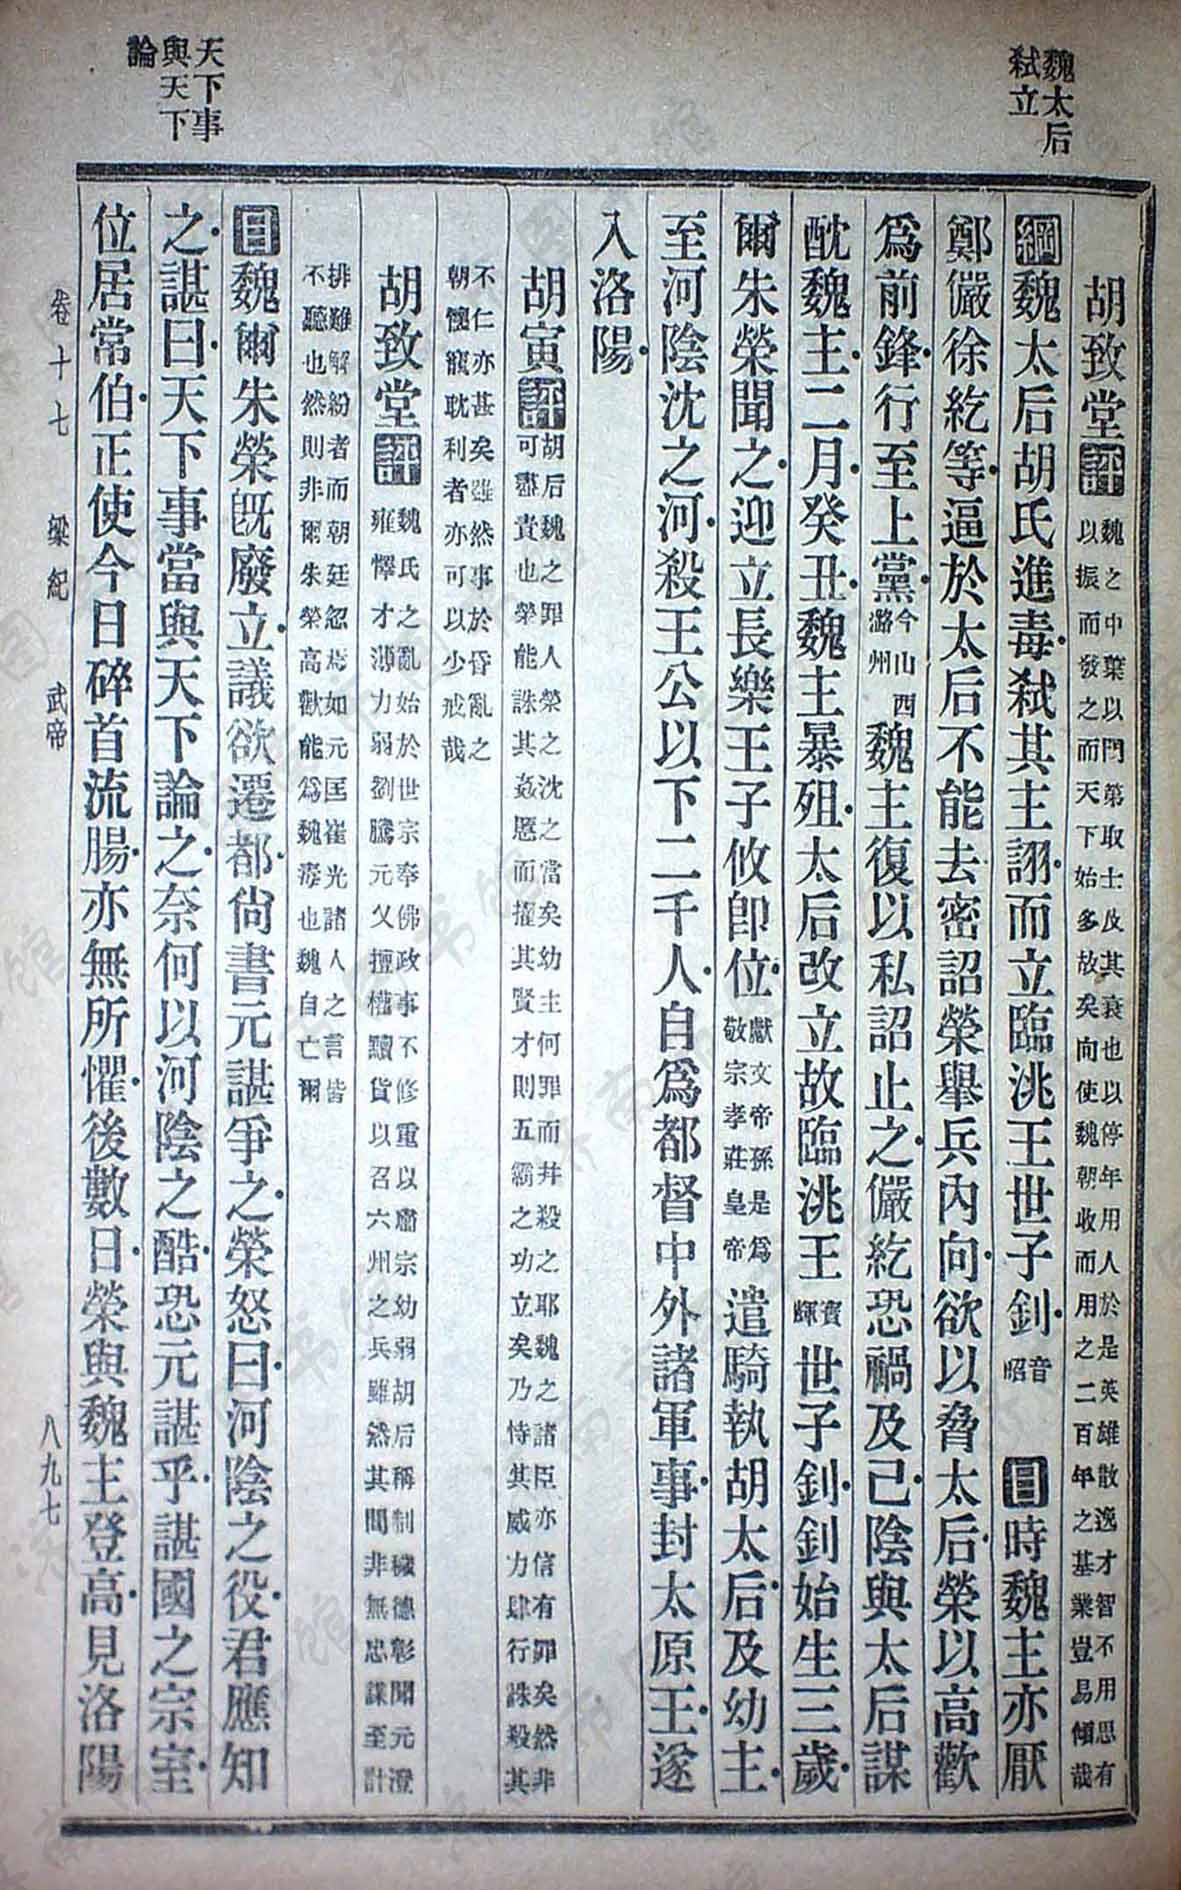 魏太后
弒立
天下事
與天下
論
胡致堂評魏之中葉以門第取士及其衰也以停年用人於是英雄散逸才智不用思有
以振而發之而天下始多故矣向使魏朝收而用之二百年之基業豈易傾哉
綱魏太后胡氏進毒弒其主詡而立臨洮王世子釗音昭 目時魏主亦厭
鄭儼徐紇等逼於太后不能去密詔榮舉兵內向欲以脅太后榮以高歡
爲前鋒行至上黨今山西潞州魏主復以私詔止之儼紇恐禍及己陰與太后謀
酖魏主二月癸丑魏主暴殂太后改立故臨洮王寶暉世子釗釗始生三歲
爾朱榮聞之迎立長樂王子攸卽位獻文帝孫是爲敬宗孝莊皇帝遣騎執胡太后及幼主
至河陰沈之河殺王公以下二千人自爲都督中外諸軍事封太原王遂
入洛陽
胡寅評胡后魏之罪人榮之沈之當矣幼主何罪而幷殺之耶魏之諸臣亦信有罪矣然非
可盡責也榮能誅其姦慝而擢其賢才則五霸之功立矣乃恃其威力肆行誅殺其
不仁亦甚矣雖然事於昏亂之
朝懷寵耽利者亦可以少戒哉
胡致堂評魏氏之亂始於世宗奉佛政事不修重以肅宗幼弱胡后稱制穢德彰聞元澄
雍懌才薄力弱劉騰元乂擅權黷貨以召六州之兵雖然其間非無忠謀至計
排難解紛者而朝廷忽焉如元匡崔光諸人之言皆
不聽也然則非爾朱榮高歡能爲魏毒也魏自亡爾
目魏爾朱榮旣廢立議欲遷都尙書元諶爭之榮怒曰河陰之役君應知
之諶曰天下事當與天下論之奈何以河陰之酷恐元諶乎諶國之宗室
位居常伯正使今日碎首流腸亦無所懼後數日榮與魏主登高見洛陽
卷十七 梁紀 武帝 八九七